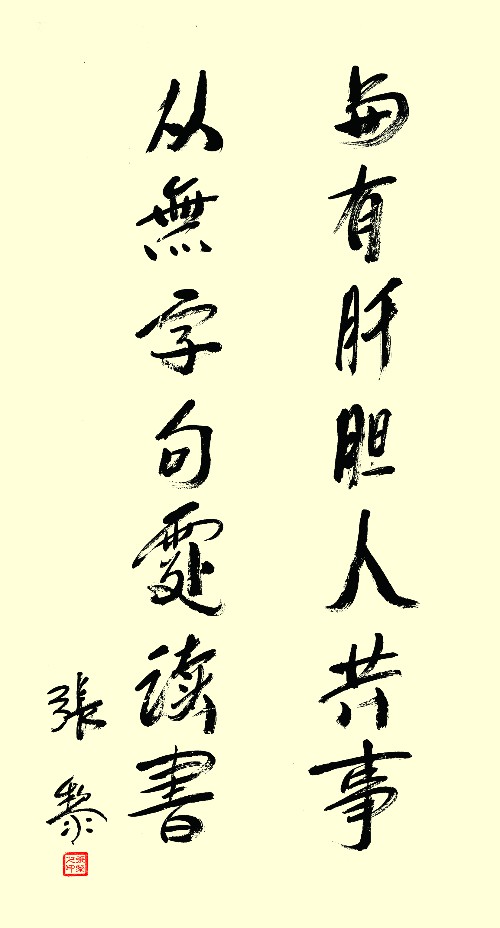 与有肝胆人共事
从無字句處读書
張黎